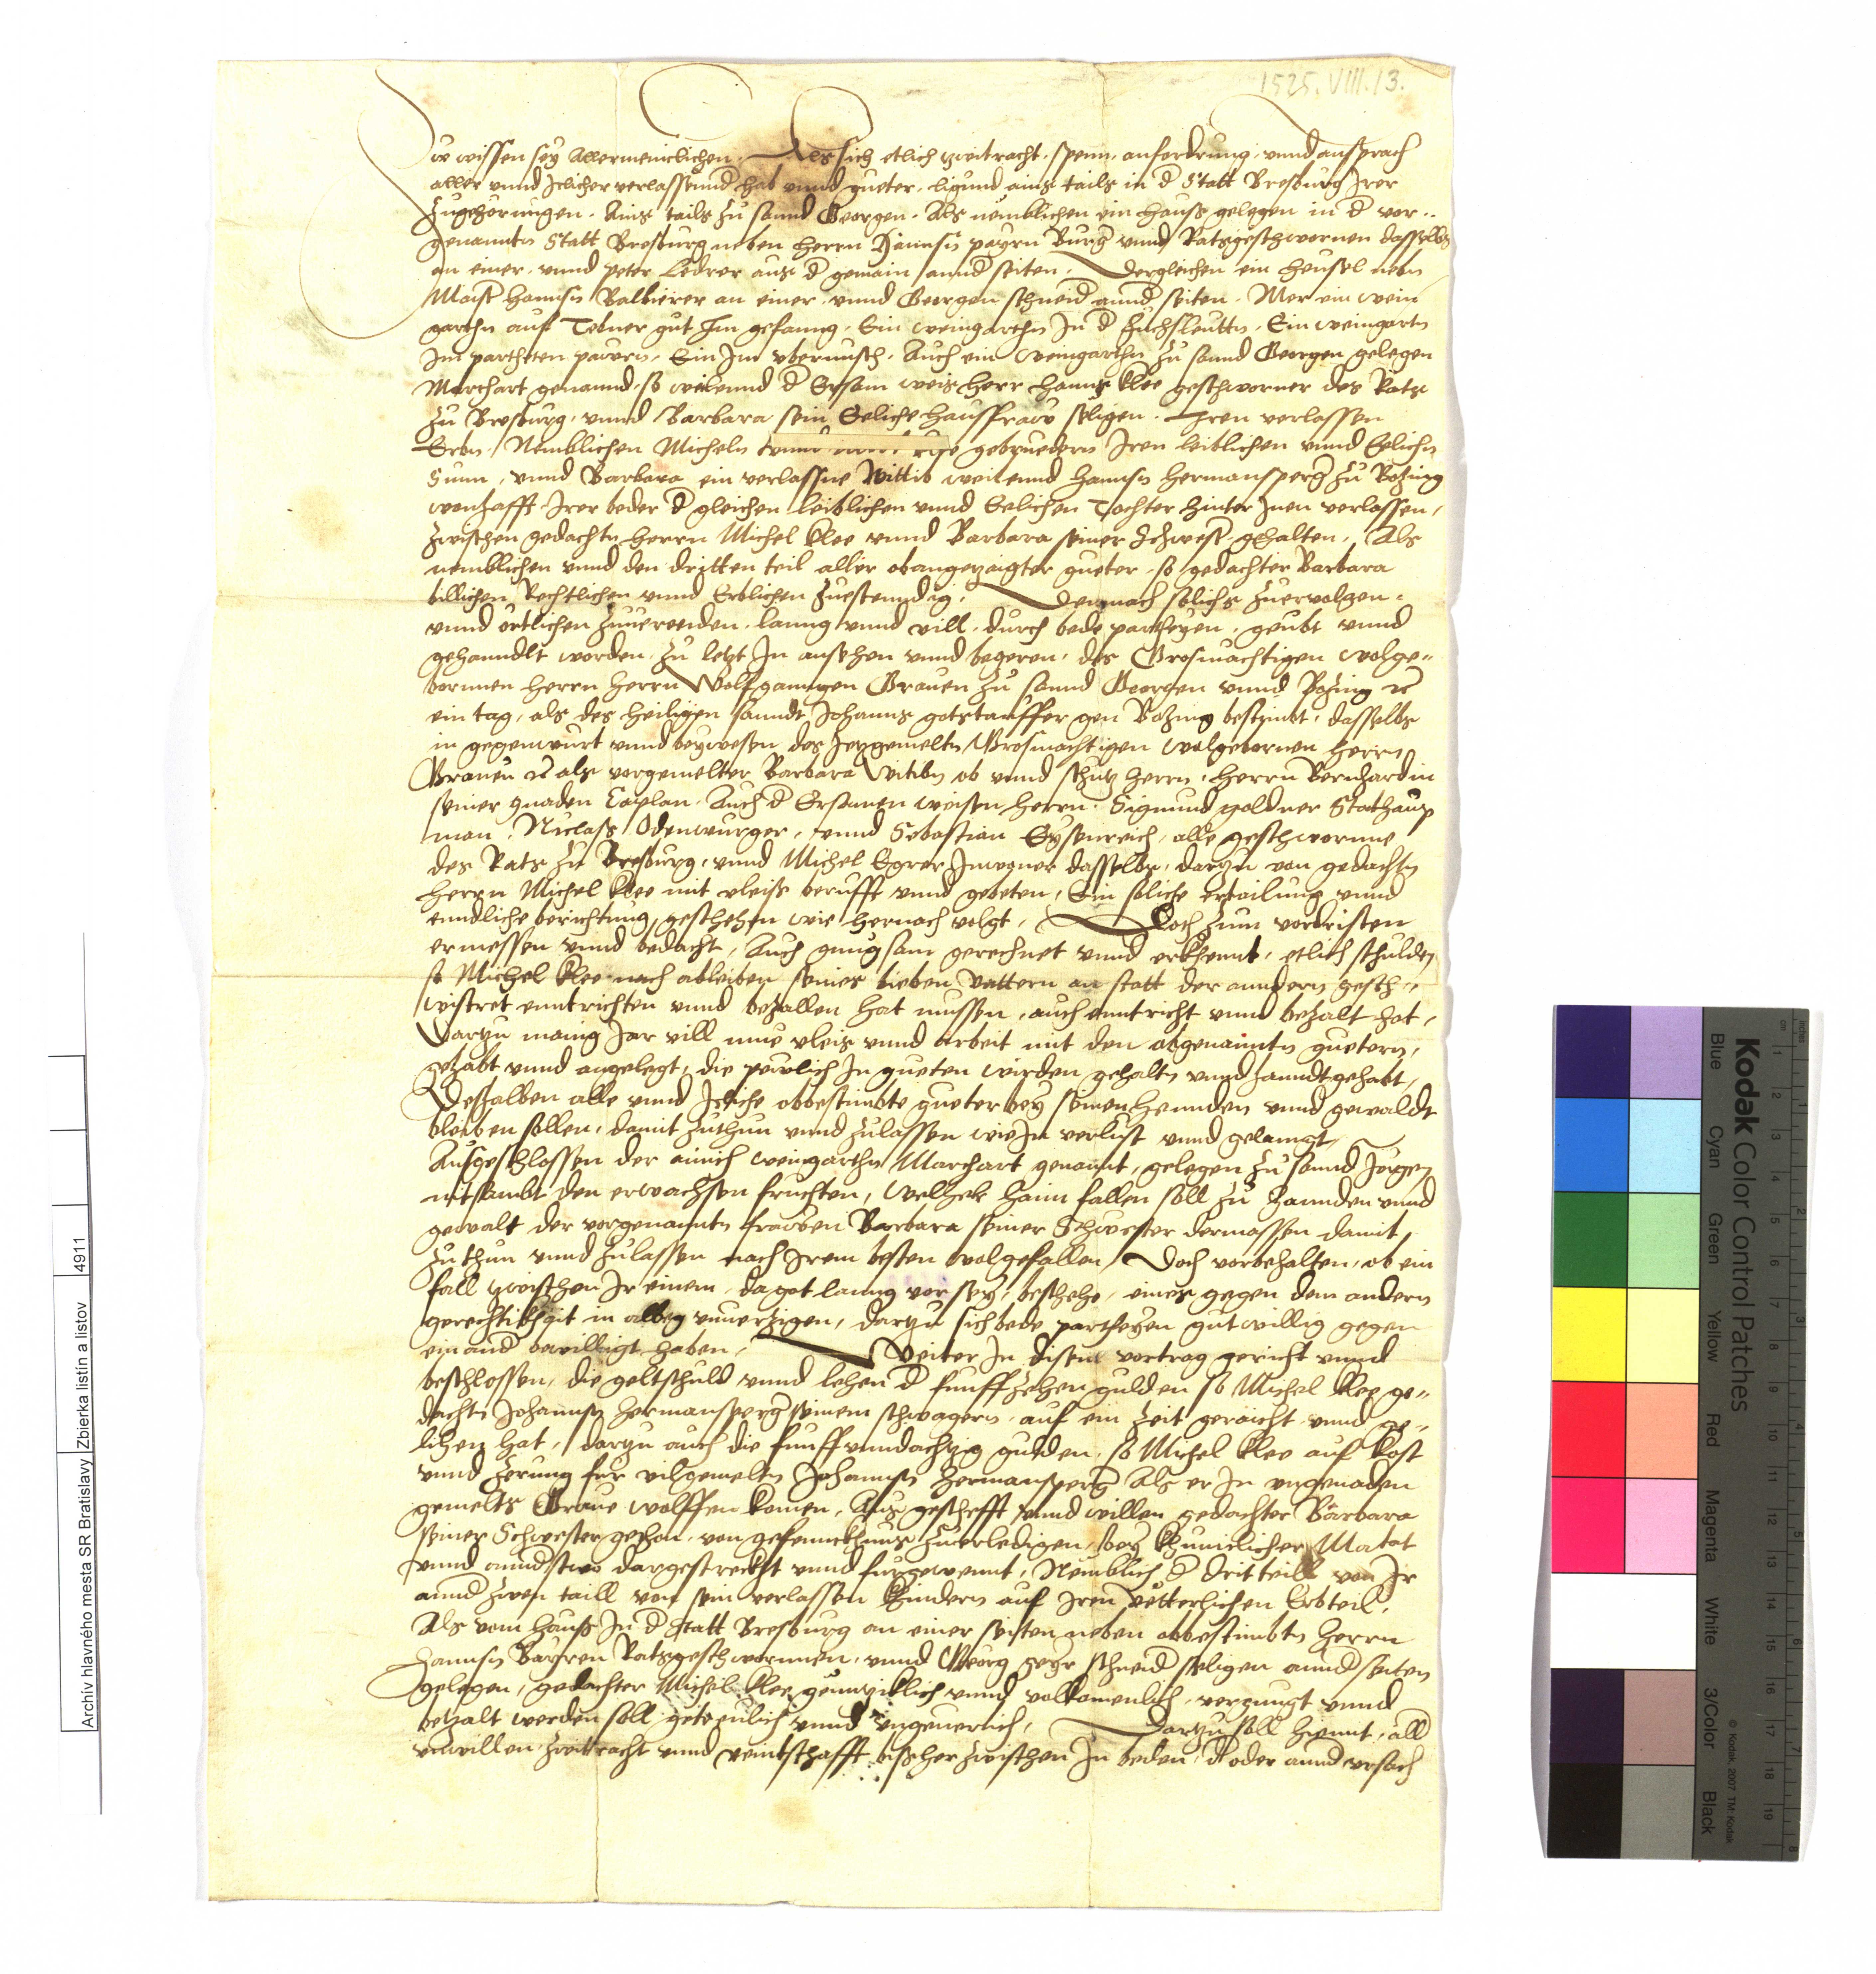 1525.VIII.13.
Zw wissen sey Allermeniclichen. Als sich etlich zwitracht. spenn. anfordrung. vnnd ansprach
aller vnnd Jtlicher verlassennd hab vnnd gueter. ligund ains tails in d Statt Bresburg Jrer
Zugehorungen. Ains tails zu sannd Georgen. Als nemblichen ein hauss gelegen in d vor..
genanntn Statt Bresburg neben herrn Hannsn payrn Burg vnnd Ratsgeschwornen dasselbs
an einer. vnnd peter Ledrer aus d gemain annd seiten. Dergleichen ein heusel nebn
Maist hannsn Balbierer an einer. vnnd Georgen schneid annd seiten. Mer ein wein
gartn auf Tebner gut Im gefanng. Ein weingartn In d fuchsleuttn. Ein weingartn
Im parthten pawrn. Ein Im vbermusch. Auch ein weingartn zu sannd Georgen gelegen
Marchart genannd. so weilennd d Ersam weis herr hanns klee geschworner des Rats
zu Bresburg. vnnd Barbara sein Eeliche hausfraw seligen. Iren verlassen
Erbn. Nemblichen Micheln vnnd gebruedern Iren leiblichen vnnd Eelichn
Sunn. vnnd Barbara ein verlassne Wittib weilennd hannsn hermansperg zu Bosing
wonhafft Irer beder d gleichen leiblichen vnnd Eelichen Tochter hinter Inen verlassen,
zwischen gedachtn herrn Michel klee vnnd Barbara seiner Schwest gehalten. Als
nemblichen vmd den dritten teil aller obangezaigter gueter. so gedachter Barbara
billichen Rechtlichen vnnd Erblichen zuestenndig. Demnach solichs zueruolgen.
vnnd ortlichen zuuerenden. lanng vnnd vill. durch bede partheyen. geubt vnnd
gehanndlt worden. zu letzt In ansehen vnnd begeren. des Grosmachtigen wolge"
bornnen herrn herrn Wolfganngen Grauen zu sannd Georgen vnnd Posing etc
ein tag, als des heiligen sanndt Johanns gotstauffer gen Bosing bestimbt. dasselbs
in gegenwurt vnnd beywesen des Jetzgemeltn Grosmachtigen wolgebornen herrn
Grauen etc als vorgemelter Barbara Witibn ob vnnd schutz herrn. herrn Bernhardin
seiner gnaden Caplan. Auch d Ersamen weisen herrn. Sigmund goldner Stathaup
man. Niclass Odenwurger. vnnd Sebastian Eysenreich, alle geschwornne
des Rats zu Bresburg, vnnd Michel Egrer Inwoner dasselbs, darzu von gedachtn
herrn Michel klee mit vleiss berufft vnnd gebeten, Ein soliche ertailung vnnd
enndliche berichtung, geschehen wie hernach volgt, Doch zum vordristen
ermessen vnnd bedacht, Auch gnugsam gerechnet vnnd erkhennt, etlich schulden
so Michel klee nach ableiben seines lieben Vattern an statt der anndern gesch"
wistret enntrichten vnnd bezallen hat mussen, auch enntricht vnnd bezalt hat,
Darzu manig Jar vill mue vleis vnnd arbeit mit den obgenanntn guetern,
gehabt vnnd angelegt, die pewlich In gueten wirden gehaltn vnnd hanndtgehabt,
Deshalben alle vnnd Jtliche obbestimbte gueter bey seinen hennden vnnd gewaldt
bleiben sollen, damit zuthun vnnd zulassen wie In verlust vnnd gelanngt,
Ausgeschlossen der ainich weingartn Marchart genannt, gelegen zu sannd Jorgen
mitsambt den erwachsen fruchten, welher haim fallen soll zu hannden vnnd
gewalt der vorgenanntn frawen Barbara seiner Schwester dermassen damit
zuthun vnnd zulassen nach Irem besten wolgefallen, Doch vorbehalten, ob ein
fall zwischen Ir einem, da got lanng vor sey, beschehe, eines gegen dem andern
gerechtikhait in alweg vnuerzigen, darzu sich bede partheyen gutwillig gegen
einand bewilligt haben, Weiter In disem vertrag gericht vnnd
beschlossen, die geltschuld vnnd lehen d funffzehen gulden so Michel klee ge"
dachtn Johannsn hermansperg seinem schwagern, auf ein Zeit geraicht vnnd ge"
lihen hat, darzu auch die funffvnndachtzig gulden, so Michel klee auf kost
vnnd zerung fur vilgemeltn Johannsn hermansperg Als er In vngenaden
gemelts Graue wolffen komen, Aus geschefft vnnd willen gedachter Barbara
seiner Schwester gethon, von gefennckhnus zuerledigen, bey khunicklicher Matat
vnnd annderstwo dargestreckht vnnd furgewennt, Nemblich d dritteill von Ir
annd zwen taill von sein verlassen kindern auf Iren vetterlichen Erbteil.
Als vom hauss In d Statt Bresburg an einer seiten neben obbestimbtn herrn
Hannsn Bayren Ratsgeschwornnen, vnnd Georg schneid seligen annd seiten
gelegen, gedachter Michel klee genntzlich vnnd volkomenlich, vergnugt vnnd
betzalt werden soll getreulich vnnd vngeuerlich, Darzu soll hiemit, all
vnwillen zwitracht vnnd veintschafft bissher zwischen In beden, d oder annd vrsach
Archív hlavného mesta SR Bratislavy
Zbierka listín a listov
4911
Kodak Color Control Patches
Blue Cyan Green Yellow Red Magenta White 3/Color Black
© Kodak, 2007 TM: Kodak
inches 1 2 3 4 5 6 7 8
cm 1 2 3 4 5 6 7 8 9 10 11 12 13 14 15 16 17 18 19